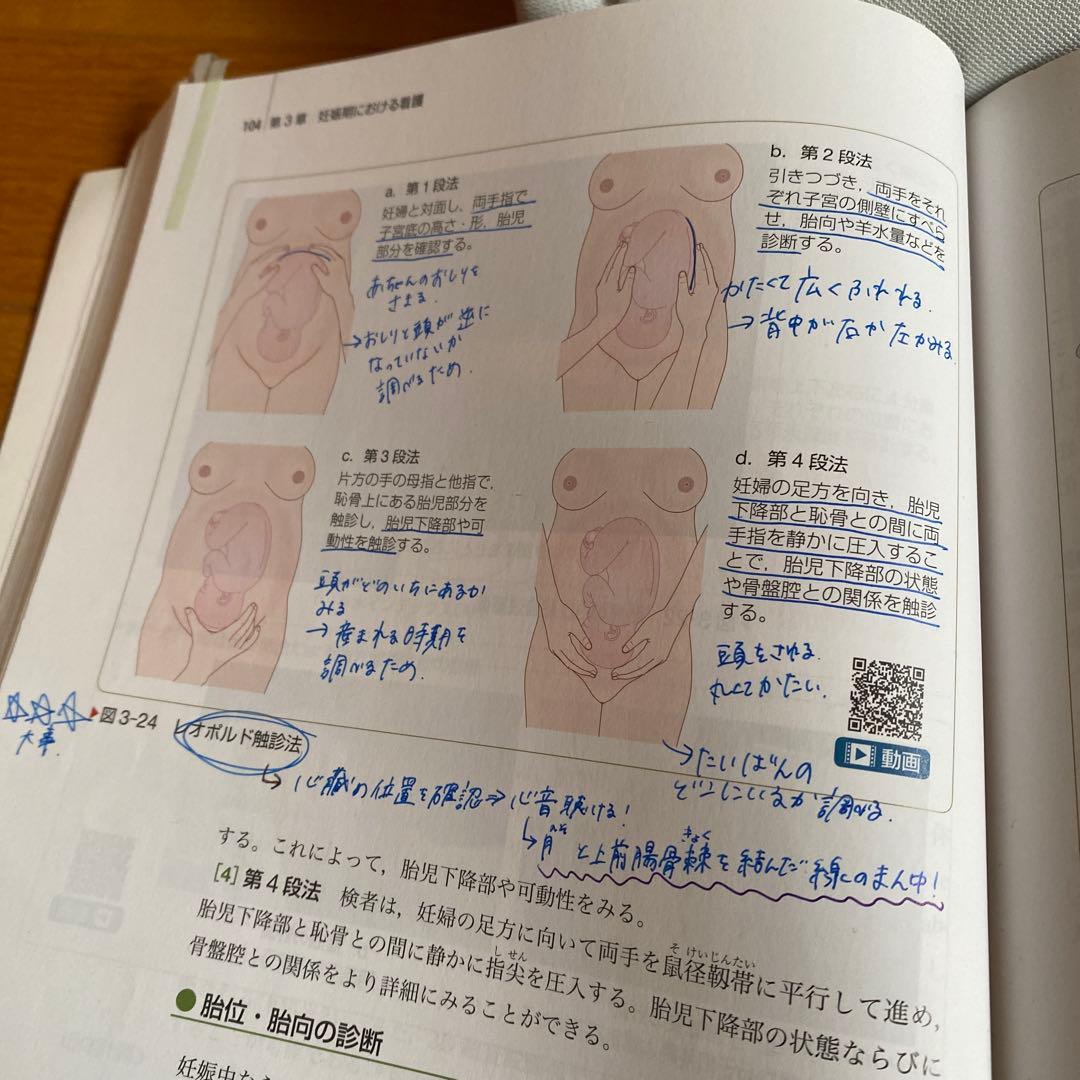 104 第3章 妊娠期における看護
a. 第1段法
妊婦と対面し、両手指で
子宮底の高さ・形、胎児
部分を確認する。
あちゃんのおしりを
さわる。
→おしりと頭が逆に
なっていないか
調べるため。
b. 第2段法
引きつづき、両手をそれ
ぞれ子宮の側壁にすべら
せ、胎向や羊水量などを
診断する。
かたくて広くふれる。
→背中が右か左かみる。
c. 第3段法
片方の手の母指と他指で、
恥骨上にある胎児部分を
触診し、胎児下降部や可
動性を触診する。
頭がどのいちにあるか
みる
→産まれる時期を
調べるため。
d. 第4段法
妊婦の足方を向き、胎児
下降部と恥骨との間に両
手指を静かに圧入するこ
とで、胎児下降部の状態
や骨盤腔との関係を触診
する。
頭をさわる。
丸くてかたい。
→たいばんの
どこにいるか調べる。
動画
大事。
図3-24 レオポルド触診法
↳心臓の位置を確認⇒心音聴ける!
↳臍と上前腸骨棘を結んだ線のまん中!
へそ
きょく
する。これによって、胎児下降部や可動性をみる。
[4] 第4段法 検者は、妊婦の足方に向いて両手を鼠径靱帯に平行して進め、
そけいじんたい
胎児下降部と恥骨との間に静かに指尖を圧入する。胎児下降部の状態ならびに
しせん
骨盤腔との関係をより詳細にみることができる。
●胎位・胎向の診断
妊娠中